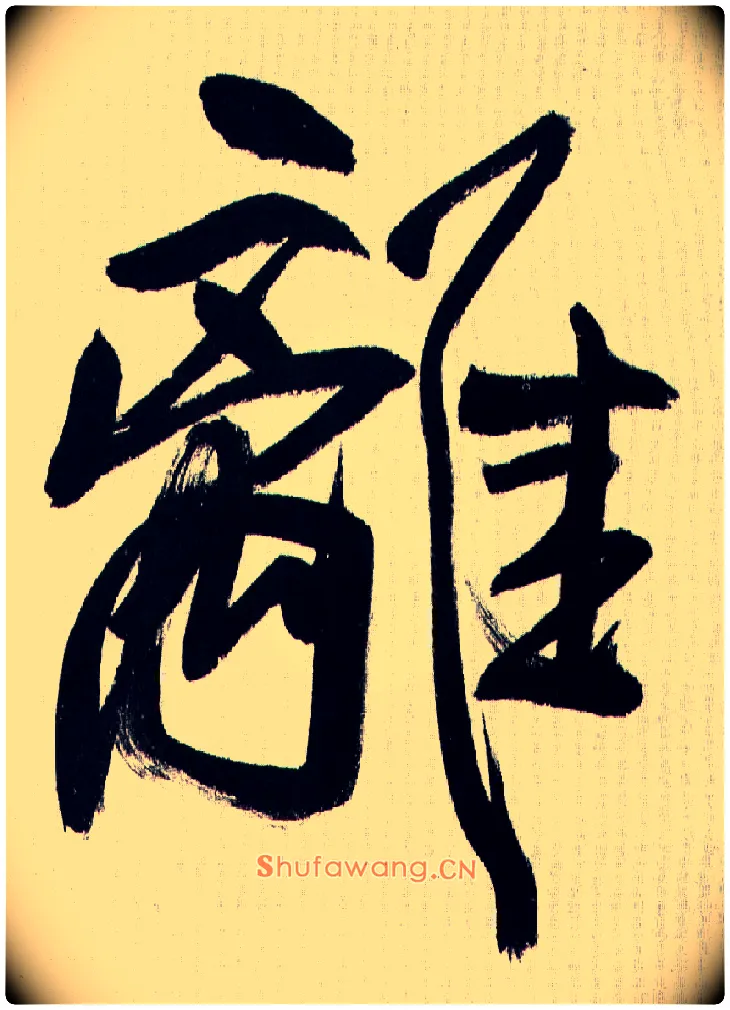 離
Shufawang.CN